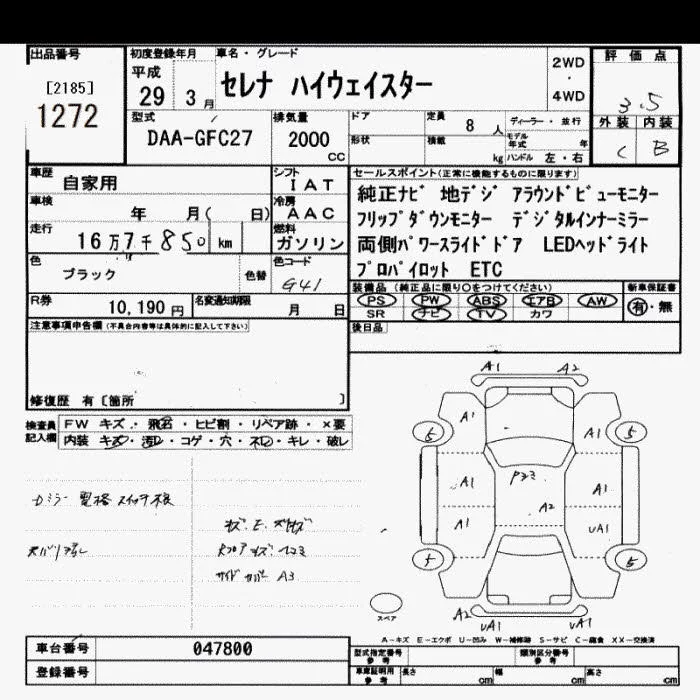 出品番号
[2185]
1272
初度登録年月
平成
29 3月
車名・グレード
セレナ ハイウェイスター
2WD
・
4WD
評価点
3.5
外装 内装
C B
型式
DAA-GFC27
排気量
2000
CC
ドア
形状
定員 8 人
積載 kg
ディーラー・並行
モデル年式 年
ハンドル 左・右
車歴
自家用
シフト
IAT
車検
年 月( 日)
冷房
AAC
走行
16万7千850 km
燃料
ガソリン
色
ブラック
色替
色コード
G41
R券
10,190 円
名変通知期限
月 日
セールスポイント(正常に機能するものに限ります)
純正ナビ 地デジ アラウンドビューモニター
フリップダウンモニター デジタルインナーミラー
両側パワースライドドア LEDヘッドライト
プロパイロット ETC
装備品 (純正品に限り○をつけてください)
PS PW ABS エアB AW
SR ナビ TV カワ
新車保証書
有・無
後日品
注意事項申告欄(不具合内容等は具体的に記入して下さい)
修復歴 有〔箇所 〕
検査員
記入欄
FW キズ・飛石・ヒビ割・リペア跡・×要
内装 キズ・汚レ・コゲ・穴・ネジ・キレ・破レ
A3
A1 A2
A1 A1
5 5
A1 A1
A2
A1 UA1
5 5
A2 UA1 UA1
スペア
A-キズ E-エクボ U-凹み W-補修跡 S-サビ C-腐食 XX-交換済
車台番号
047800
登録番号
型式指定番号
参考
類別区分番号
参考
車庫証明用
参考
長さ cm 幅 cm 高さ cm